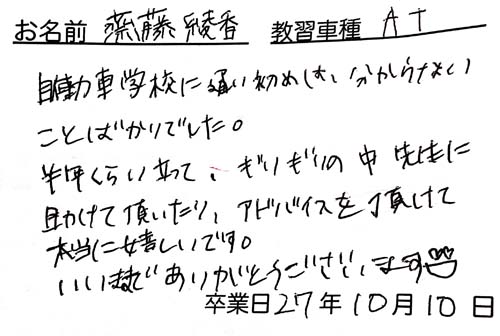 お名前 齋藤綾香 教習車種 AT
自動車学校に通い初めは、分からない
ことばかりでした。
半年くらい立って、ギリギリの中先生に
助けて頂いたり、アドバイスを頂けて
本当に嬉しいです。
いままでありがとうございます
卒業日27年10月10日